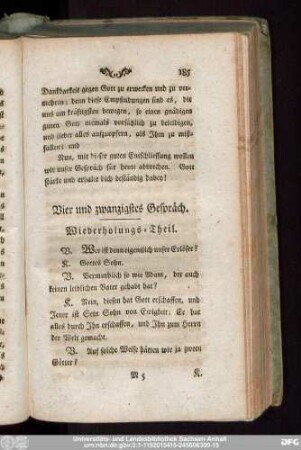 185
Dankbarkeit gegen Gott zu erwecken und zu ver-
mehren; denn diese Empfindungen sind es, die
uns am kräftigsten bewegen, so einen gnädigen
guten Gott niemals vorsätzlich zu beleidigen,
und lieber alles aufzuopfern, als Ihm zu miß-
fallen: und
Nun, mit dieser guten Entschliessung wollen
wir unser Gespräch für heut abbrechen. Gott
stärke und erhalte dich beständig dabey!
Vier und zwanzigstes Gespräch.
Wiederholungs-Theil.
V. Wer ist denn eigentlich unser Erlöser?
K. Gottes Sohn.
V. Vermuthlich so wie Adam, der auch
keinen leiblichen Vater gehabt hat?
K. Nein, diesen hat Gott erschaffen, und
Jener ist Sein Sohn von Ewigkeit; Er hat
alles durch Ihn erschaffen, und Ihn zum Herrn
der Welt gemacht.
V. Auf solche Weise hätten wir ja zween
Götter?
M 5
K.
Universitäts- und Landesbibliothek Sachsen-Anhalt
DFG